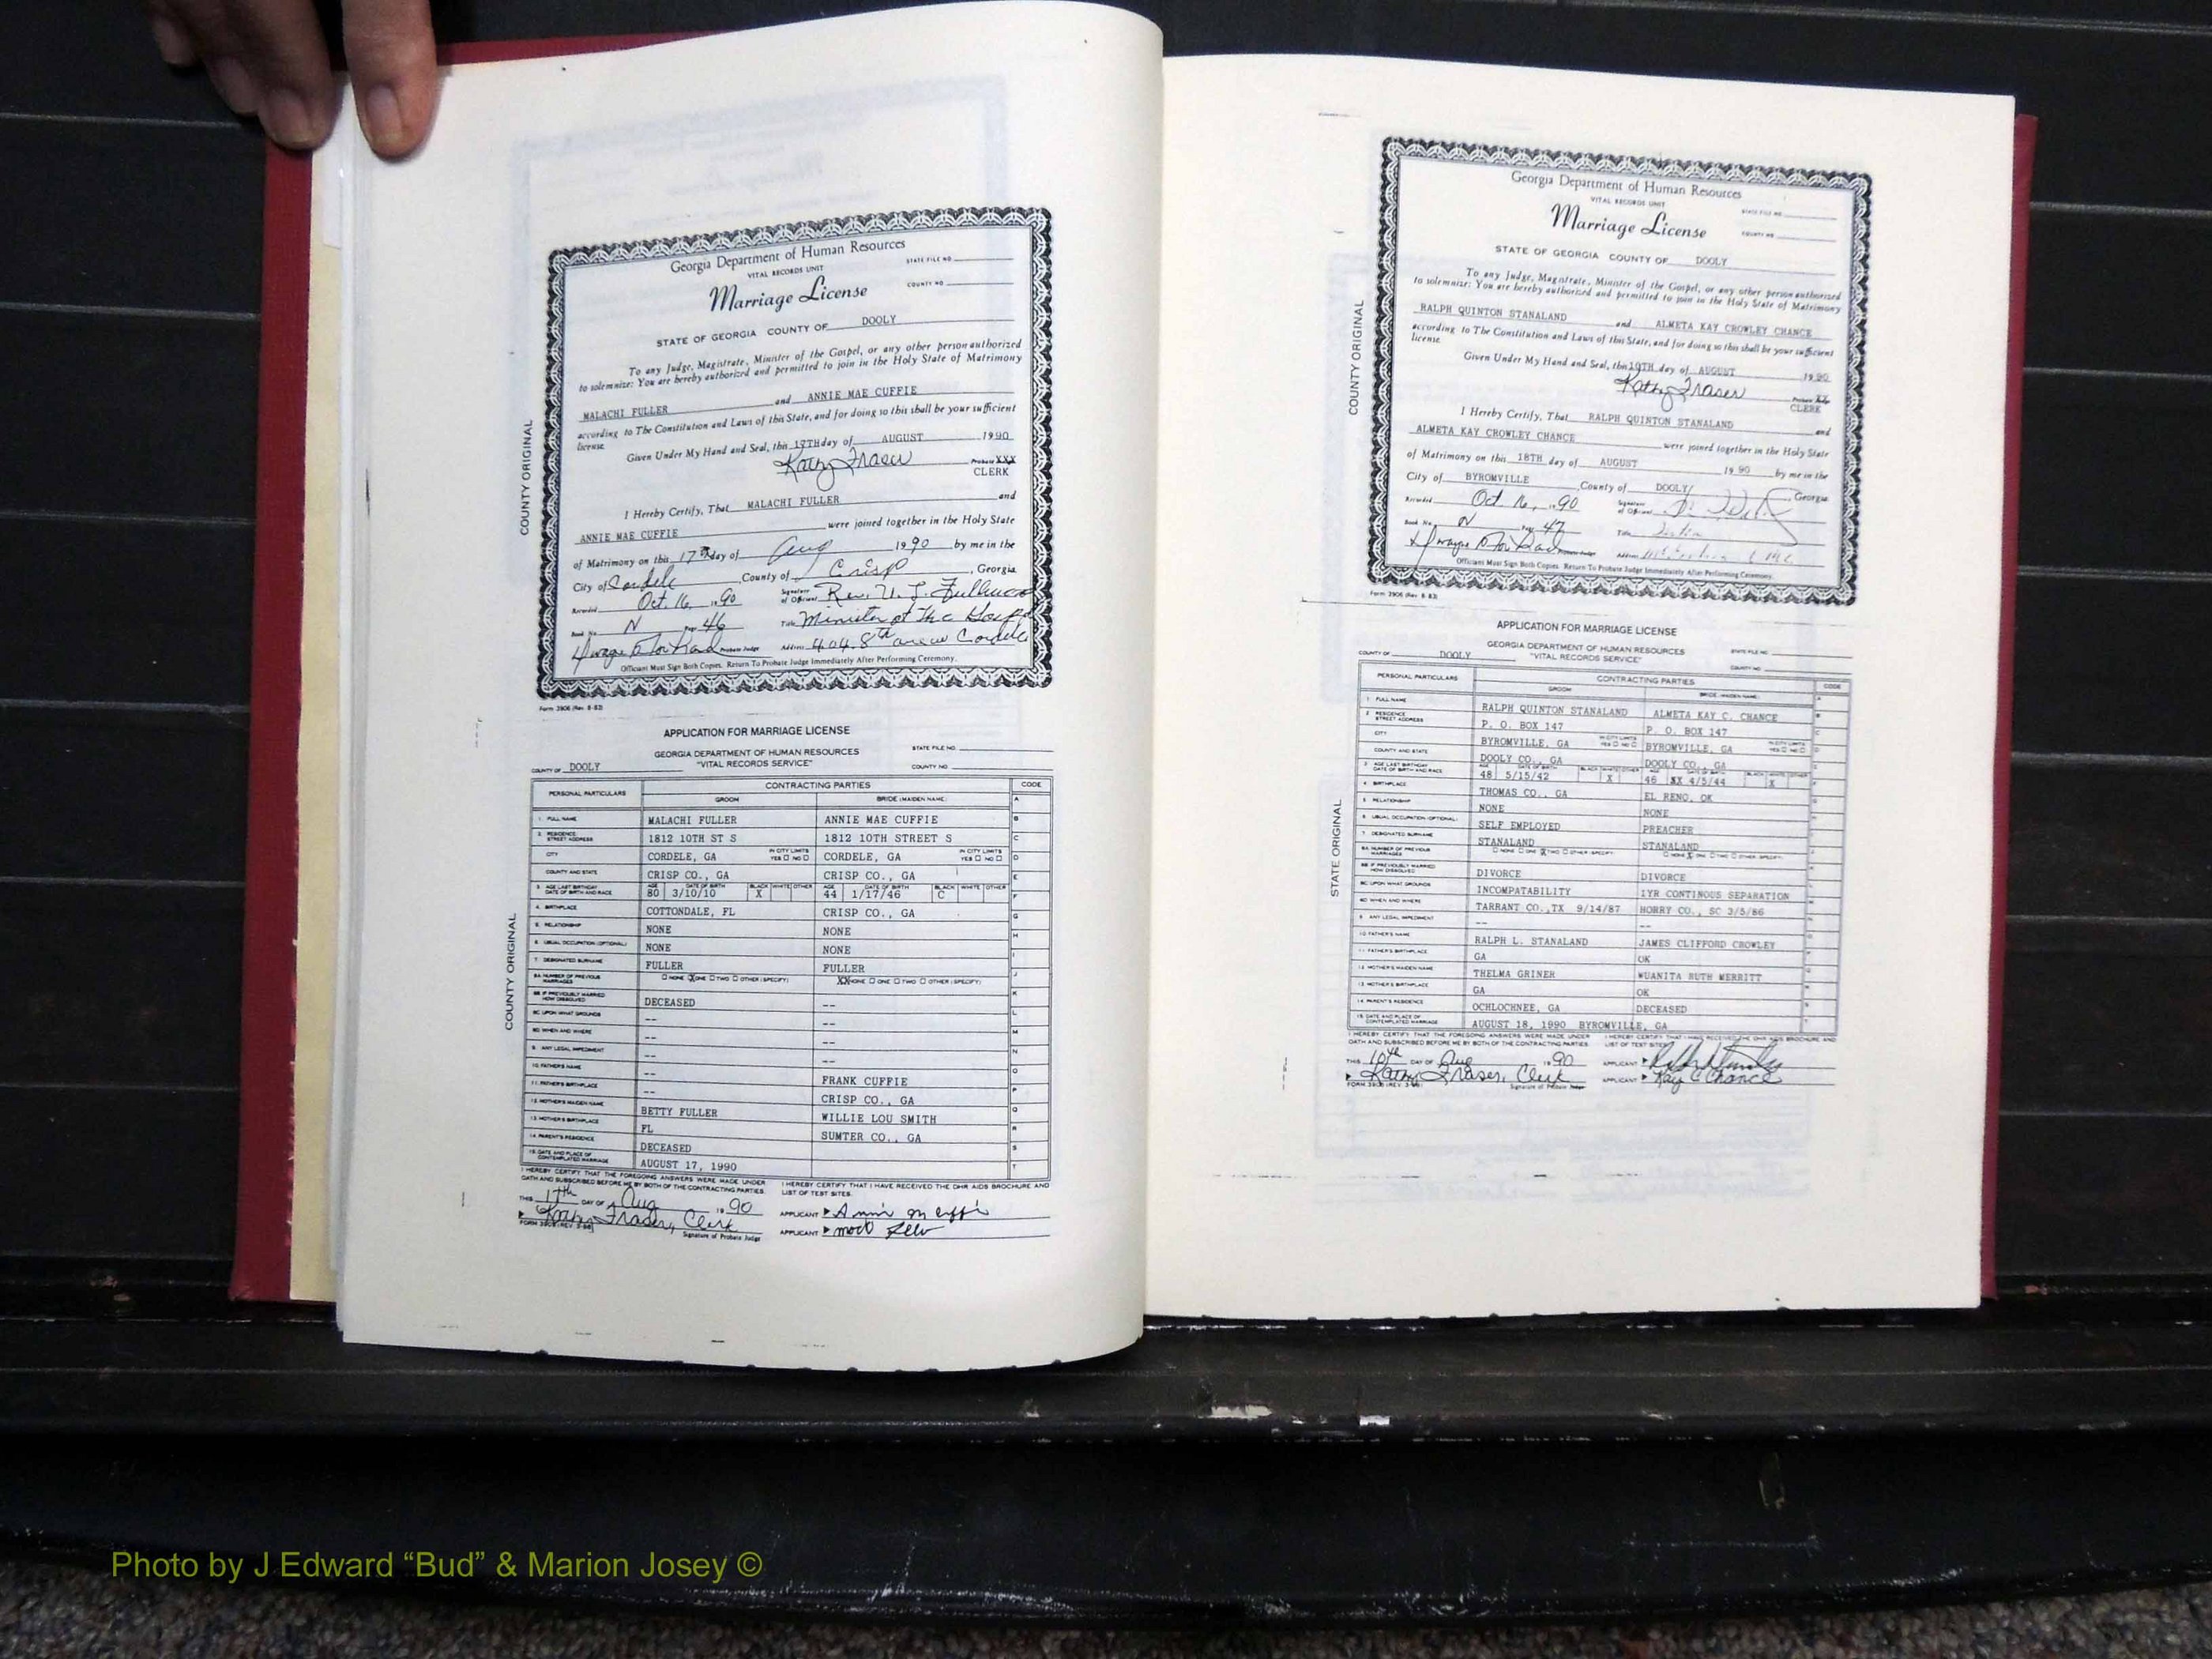 Georgia Department of Human Resources
VITAL RECORDS UNIT
STATE FILE NO.
Marriage License
COUNTY NO.
STATE OF GEORGIA COUNTY OF DOOLY
To any Judge, Magistrate, Minister of the Gospel, or any other person authorized
to solemnize: You are hereby authorized and permitted to join in the Holy State of Matrimony
MALACHI FULLER and ANNIE MAE CUFFIE
according to The Constitution and Laws of this State, and for doing so this shall be your sufficient
license.
Given Under My Hand and Seal, this 17TH day of AUGUST 1990
Kathy Fraser Probate XXX
CLERK
I Hereby Certify, That MALACHI FULLER and
ANNIE MAE CUFFIE were joined together in the Holy State
of Matrimony on this 17th day of Aug 1990 by me in the
City of Cordele, County of Crisp, Georgia
Recorded Oct. 16, 1990 Signature of Official Rev.
Book No. N Page 46 Title Minister of The
Probate Judge Address 404 8th Cordele
Officiant Must Sign Both Copies. Return To Probate Judge Immediately After Performing Ceremony.
Form 3906 (Rev. 8-83)
COUNTY ORIGINAL
APPLICATION FOR MARRIAGE LICENSE
GEORGIA DEPARTMENT OF HUMAN RESOURCES STATE FILE NO.
COUNTY OF DOOLY "VITAL RECORDS SERVICE" COUNTY NO.
PERSONAL PARTICULARS CONTRACTING PARTIES CODE
GROOM BRIDE (MAIDEN NAME) A
1. FULL NAME MALACHI FULLER ANNIE MAE CUFFIE B
2. RESIDENCE STREET ADDRESS 1812 10TH ST S 1812 10TH STREET S C
CITY CORDELE, GA IN CITY LIMITS YES NO CORDELE, GA IN CITY LIMITS YES NO D
COUNTY AND STATE CRISP CO., GA CRISP CO., GA E
3. AGE LAST BIRTHDAY DATE OF BIRTH AND RACE AGE 80 DATE OF BIRTH 3/10/10 BLACK X WHITE OTHER AGE 44 DATE OF BIRTH 1/17/46 BLACK C WHITE OTHER F
4. BIRTHPLACE COTTONDALE, FL CRISP CO., GA G
5. RELATIONSHIP NONE NONE H
6. USUAL OCCUPATION (OPTIONAL) NONE NONE I
7. DESIGNATED SURNAME FULLER FULLER
8A. NUMBER OF PREVIOUS MARRIAGES NONE X ONE TWO OTHER (SPECIFY) XX NONE ONE TWO OTHER (SPECIFY) J
8B. IF PREVIOUSLY MARRIED HOW DISSOLVED DECEASED -- K
8C. UPON WHAT GROUNDS -- -- L
8D. WHEN AND WHERE -- -- M
9. ANY LEGAL IMPEDIMENT -- -- N
10. FATHER'S NAME -- FRANK CUFFIE O
11. FATHER'S BIRTHPLACE -- CRISP CO., GA P
12. MOTHER'S MAIDEN NAME BETTY FULLER WILLIE LOU SMITH Q
13. MOTHER'S BIRTHPLACE FL SUMTER CO., GA R
14. PARENT'S RESIDENCE DECEASED S
15. DATE AND PLACE OF CONTEMPLATED MARRIAGE AUGUST 17, 1990 T
I HEREBY CERTIFY THAT THE FOREGOING ANSWERS WERE MADE UNDER
OATH AND SUBSCRIBED BEFORE ME BY BOTH OF THE CONTRACTING PARTIES.
I HEREBY CERTIFY THAT I HAVE RECEIVED THE DHR AIDS BROCHURE AND
LIST OF TEST SITES.
THIS 17th DAY OF Aug 1990 APPLICANT
Kathy Fraser, Clerk APPLICANT
Signature of Probate Judge
COUNTY ORIGINAL
Georgia Department of Human Resources
VITAL RECORDS UNIT
STATE FILE NO.
Marriage License
COUNTY NO.
STATE OF GEORGIA COUNTY OF DOOLY
To any Judge, Magistrate, Minister of the Gospel, or any other person authorized
to solemnize: You are hereby authorized and permitted to join in the Holy State of Matrimony
RALPH QUINTON STANALAND and ALMETA KAY CROWLEY CHANCE
according to The Constitution and Laws of this State, and for doing so this shall be your sufficient
license.
Given Under My Hand and Seal, this 10TH day of AUGUST 1990
Kathy Fraser
CLERK
I Hereby Certify, That RALPH QUINTON STANALAND and
ALMETA KAY CROWLEY CHANCE were joined together in the Holy State
of Matrimony on this 18TH day of AUGUST 1990 by me in the
City of BYROMVILLE, County of DOOLY, Georgia
Recorded Oct. 16, 1990 Signature of Official
Book No. N Page 47 Title
Probate Judge Address
Officiant Must Sign Both Copies. Return To Probate Judge Immediately After Performing Ceremony.
Form 3906 (Rev. 8-83)
COUNTY ORIGINAL
APPLICATION FOR MARRIAGE LICENSE
GEORGIA DEPARTMENT OF HUMAN RESOURCES STATE FILE NO.
COUNTY OF DOOLY "VITAL RECORDS SERVICE" COUNTY NO.
PERSONAL PARTICULARS CONTRACTING PARTIES CODE
GROOM BRIDE (MAIDEN NAME)
1. FULL NAME RALPH QUINTON STANALAND ALMETA KAY C. CHANCE
2. RESIDENCE STREET ADDRESS P. O. BOX 147 P. O. BOX 147
CITY BYROMVILLE, GA IN CITY LIMITS YES NO BYROMVILLE, GA IN CITY LIMITS YES NO
COUNTY AND STATE DOOLY CO., GA DOOLY CO., GA
3. AGE LAST BIRTHDAY DATE OF BIRTH AND RACE 48 5/15/42 X 46 XX 4/5/44 X
4. BIRTHPLACE THOMAS CO., GA EL RENO, OK
5. RELATIONSHIP NONE NONE
6. USUAL OCCUPATION (OPTIONAL) SELF EMPLOYED PREACHER
7. DESIGNATED SURNAME STANALAND STANALAND
8A. NUMBER OF PREVIOUS MARRIAGES NONE ONE X TWO OTHER (SPECIFY) NONE X ONE TWO OTHER (SPECIFY)
8B. IF PREVIOUSLY MARRIED HOW DISSOLVED DIVORCE DIVORCE
8C. UPON WHAT GROUNDS INCOMPATABILITY 1YR CONTINOUS SEPARATION
8D. WHEN AND WHERE TARRANT CO.,TX 9/14/87 HORRY CO., SC 3/5/86
9. ANY LEGAL IMPEDIMENT -- --
10. FATHER'S NAME RALPH L. STANALAND JAMES CLIFFORD CROWLEY
11. FATHER'S BIRTHPLACE GA OK
12. MOTHER'S MAIDEN NAME THELMA GRINER WUANITA RUTH MERRITT
13. MOTHER'S BIRTHPLACE GA OK
14. PARENT'S RESIDENCE OCHLOCHNEE, GA DECEASED
15. DATE AND PLACE OF CONTEMPLATED MARRIAGE AUGUST 18, 1990 BYROMVILLE, GA
I HEREBY CERTIFY THAT THE FOREGOING ANSWERS WERE MADE UNDER
OATH AND SUBSCRIBED BEFORE ME BY BOTH OF THE CONTRACTING PARTIES.
I HEREBY CERTIFY THAT I HAVE RECEIVED THE DHR AIDS BROCHURE AND
LIST OF TEST SITES.
THIS 10th DAY OF Aug 1990 APPLICANT
Kathy Fraser, Clerk APPLICANT Kay C Chance
Signature of Probate Judge
STATE ORIGINAL
Photo by J Edward “Bud” & Marion Josey ©